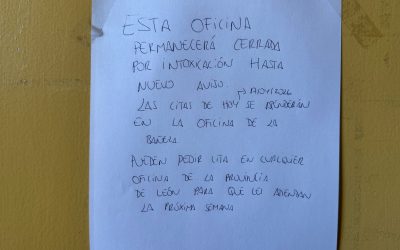 ESTA OFICINA
PERMANECERÁ CERRADA
POR INTOXICACIÓN HASTA
NUEVO AVISO.
LAS CITAS DE HOY SE ATENDERÁN
EN LA OFICINA DE LA
BAÑEZA.
PUEDEN PEDIR CITA EN CUALQUIER
OFICINA DE LA PROVINCIA
DE LEÓN PARA QUE LES ATIENDAN
LA PRÓXIMA SEMANA